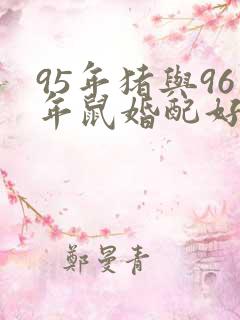 95年猪與96
年鼠婚配好
鄭曼青